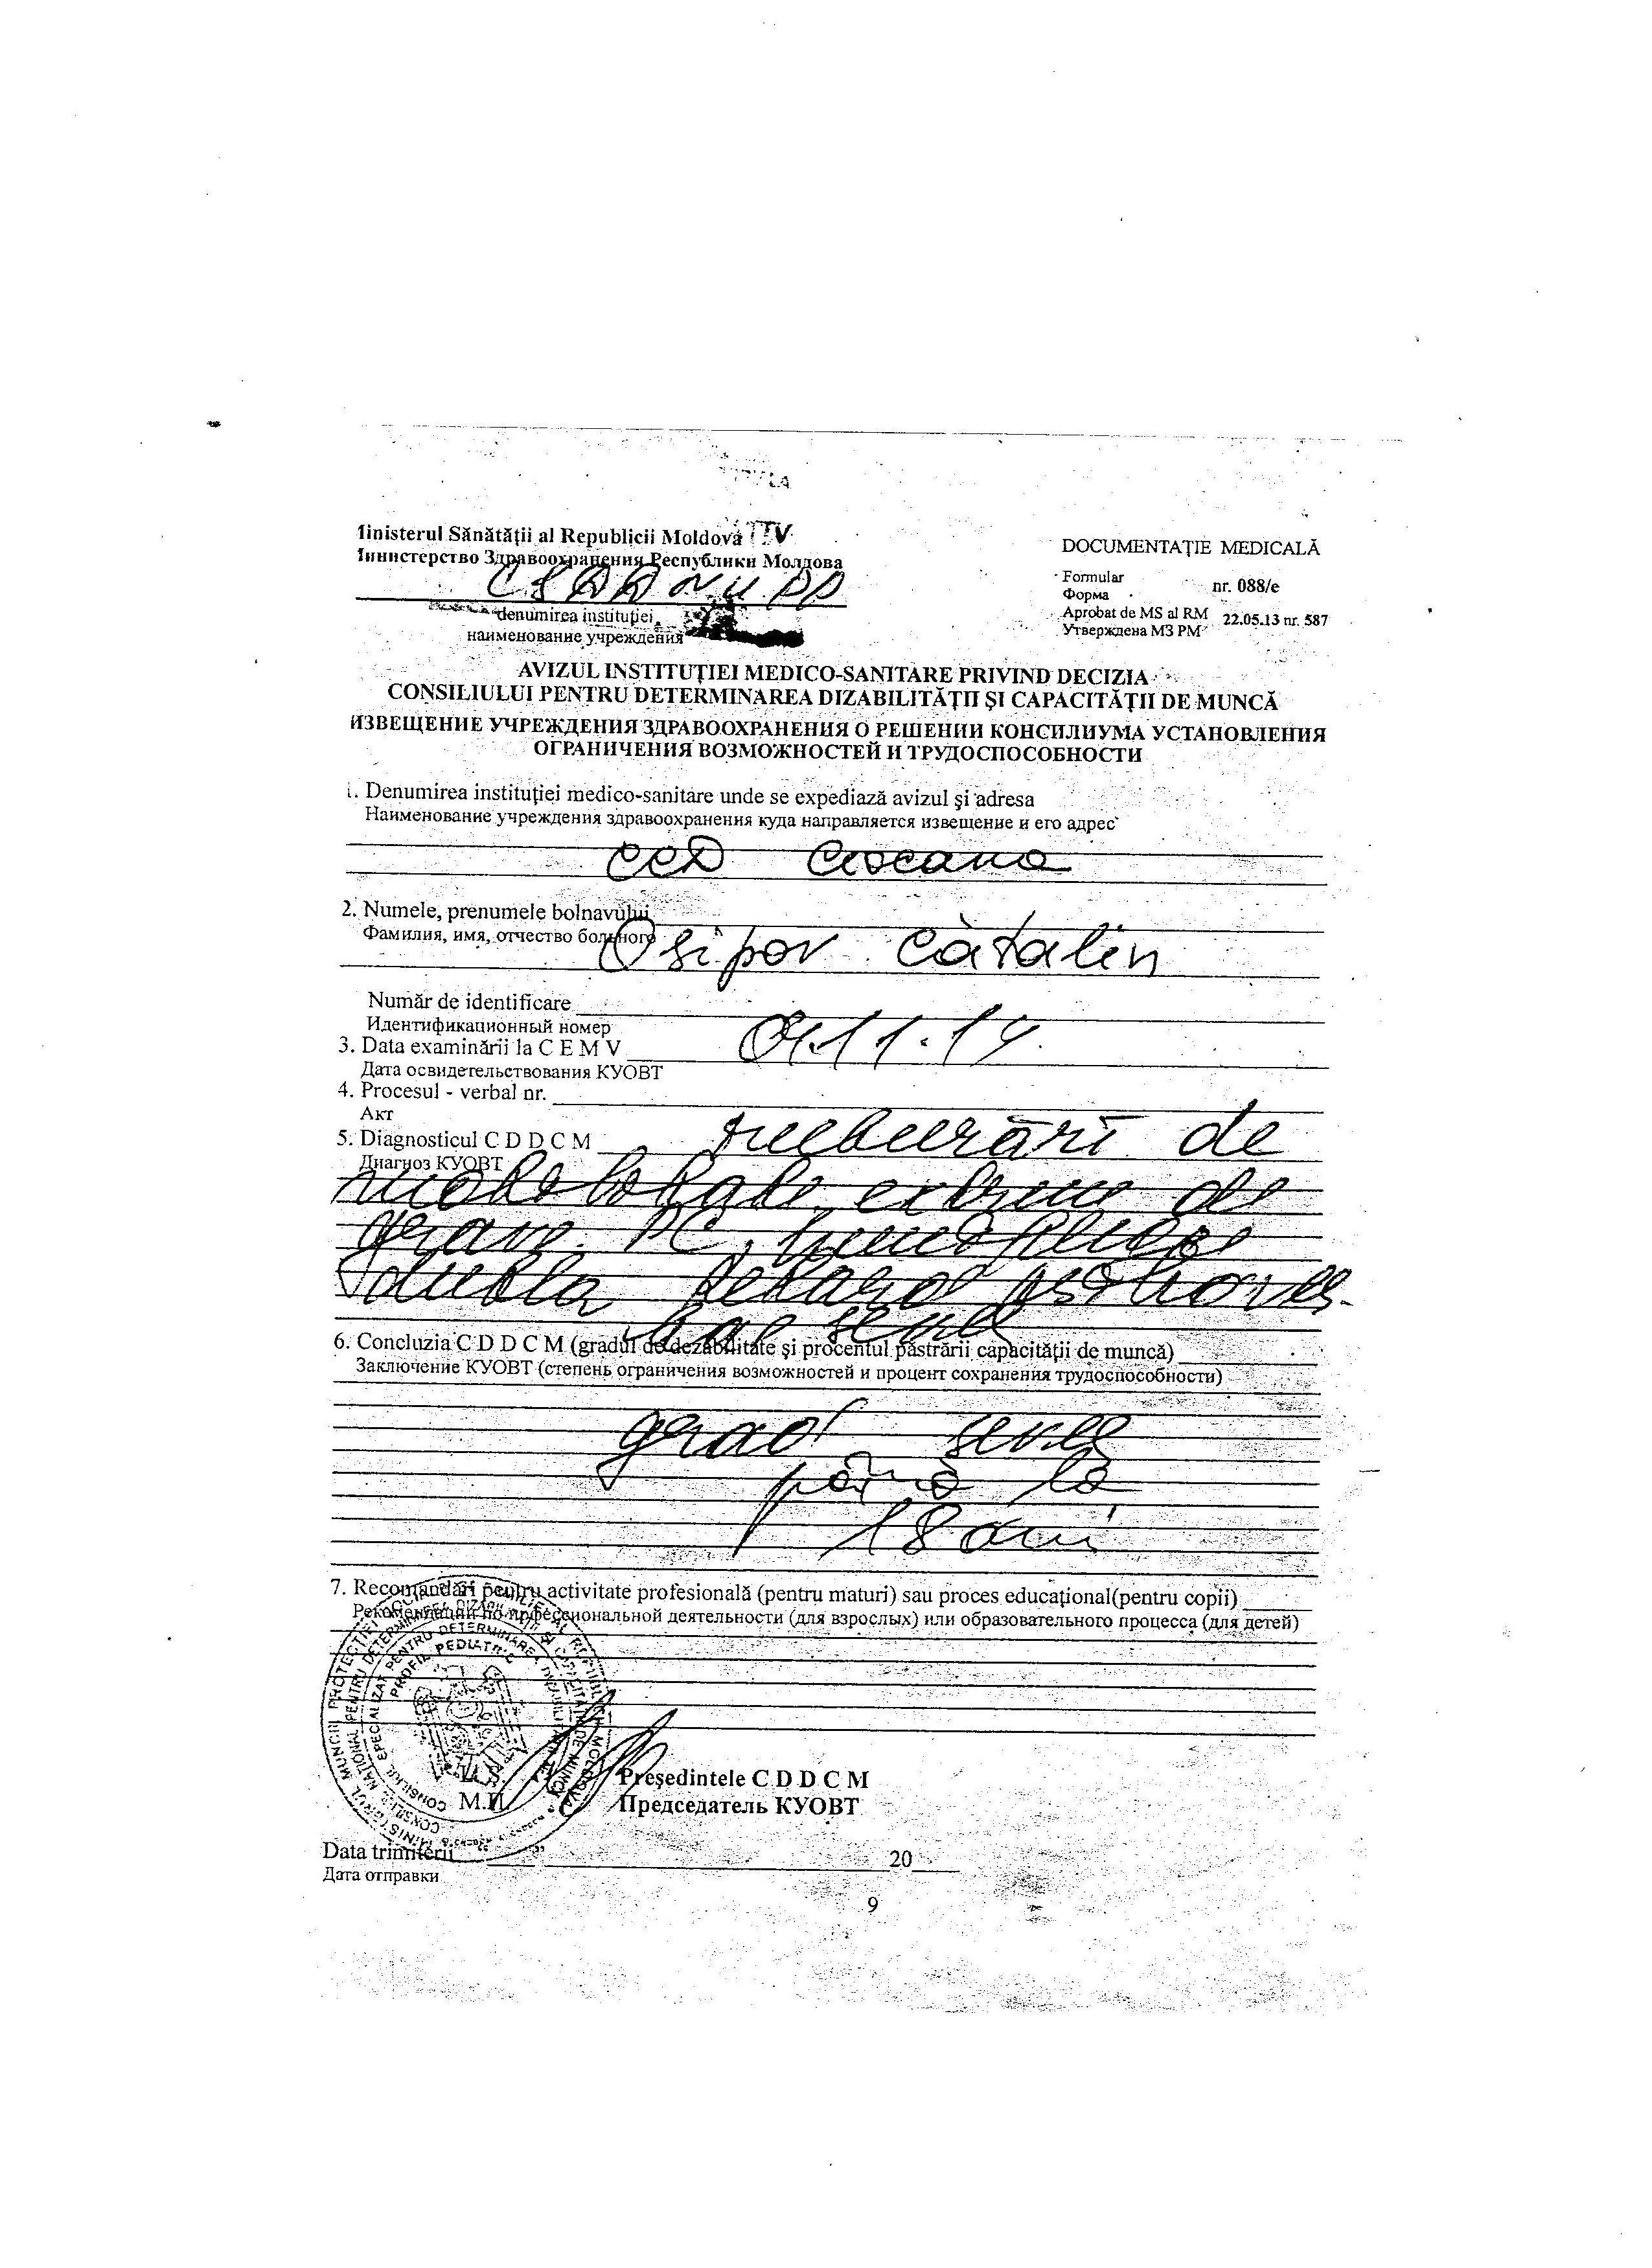 Ministerul Sănătăţii al Republicii Moldova
Министерство Здравоохранения Республики Молдова
denumirea instituţiei
наименование учреждения
DOCUMENTAŢIE MEDICALĂ
Formular
Форма
nr. 088/e
Aprobat de MS al RM 22.05.13 nr. 587
Утверждена МЗ РМ
AVIZUL INSTITUŢIEI MEDICO-SANITARE PRIVIND DECIZIA
CONSILIULUI PENTRU DETERMINAREA DIZABILITĂŢII ŞI CAPACITĂŢII DE MUNCĂ
ИЗВЕЩЕНИЕ УЧРЕЖДЕНИЯ ЗДРАВООХРАНЕНИЯ О РЕШЕНИИ КОНСИЛИУМА УСТАНОВЛЕНИЯ
ОГРАНИЧЕНИЯ ВОЗМОЖНОСТЕЙ И ТРУДОСПОСОБНОСТИ
1. Denumirea instituţiei medico-sanitare unde se expediază avizul şi adresa
Наименование учреждения здравоохранения куда направляется извещение и его адрес
2. Numele, prenumele bolnavului
Фамилия, имя, отчество больного
Osipov Cătalin
Număr de identificare
Идентификационный номер
3. Data examinării la C E M V
Дата освидетельствования КУОВТ
4. Procesul - verbal nr.
Акт
5. Diagnosticul C D D C M tulburări de
Диагноз КУОВТ
de
grave
dubla retard
6. Concluzia C D D C M (gradul de dezabilitate şi procentul păstrării capacităţii de muncă)
Заключение КУОВТ (степень ограничения возможностей и процент сохранения трудоспособности)
grad sever
până la
18 ani
7. Recomandări pentru activitate profesională (pentru maturi) sau proces educaţional(pentru copii)
Рекомендации по профессиональной деятельности (для взрослых) или образовательного процесса (для детей)
PROFIL PEDIATRIC
М.П.
Preşedintele C D D C M
Председатель КУОВТ
Data trimiterii 20
Дата отправки
9